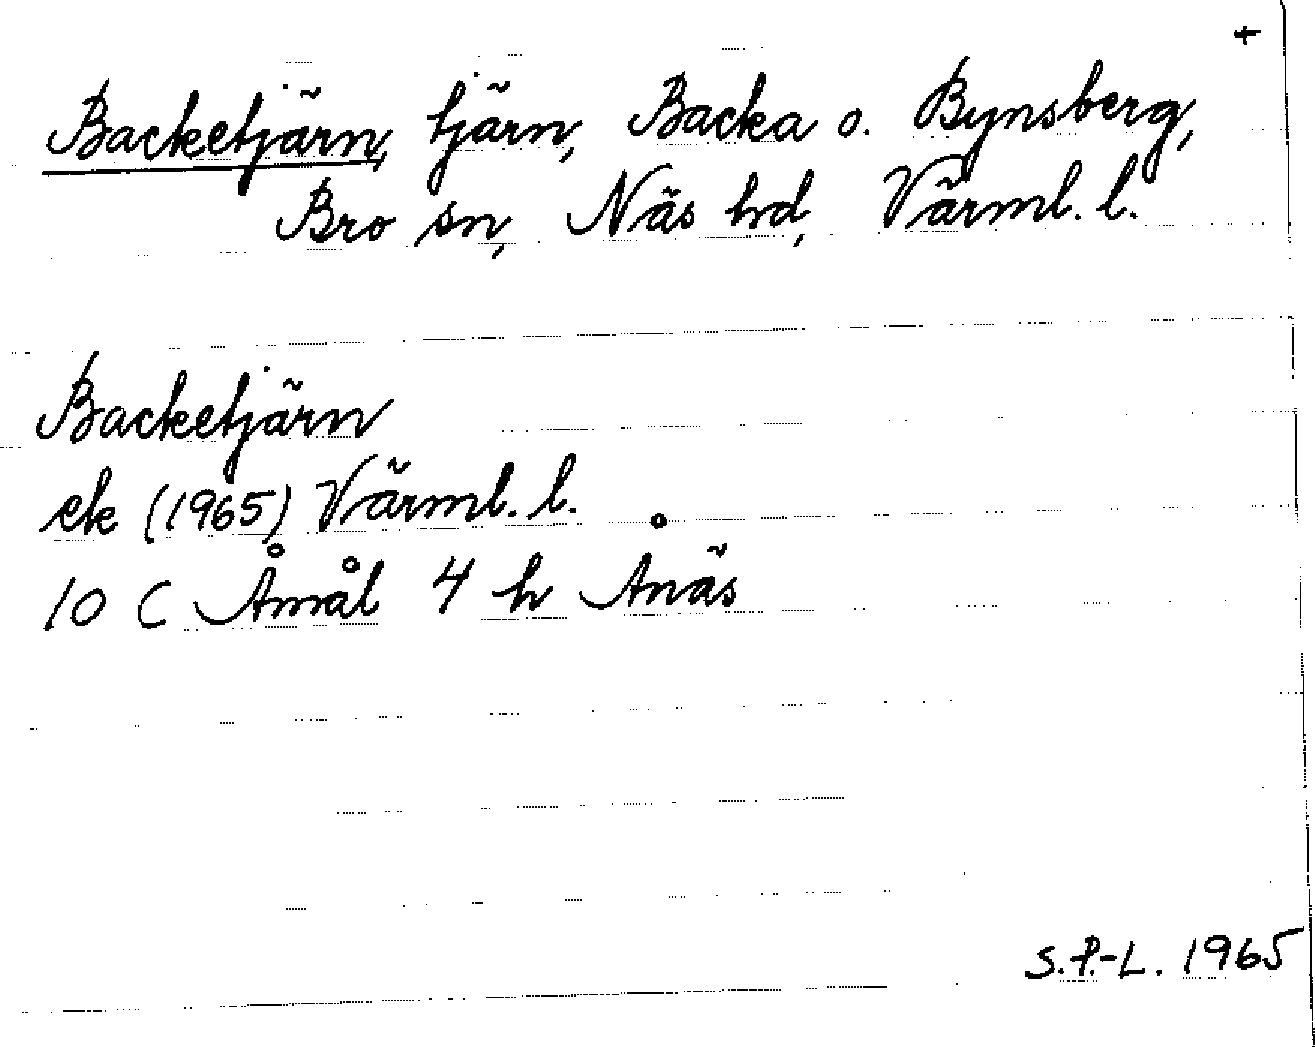 +
Backetjärn, tjärn, Backa o. Bynsberg,
Bro sn, Näs hd, Värml. l.
Backetjärn
ek (1965) Värml. l.
10 C Åmål 4 h Ånäs
S.P.-L. 1965